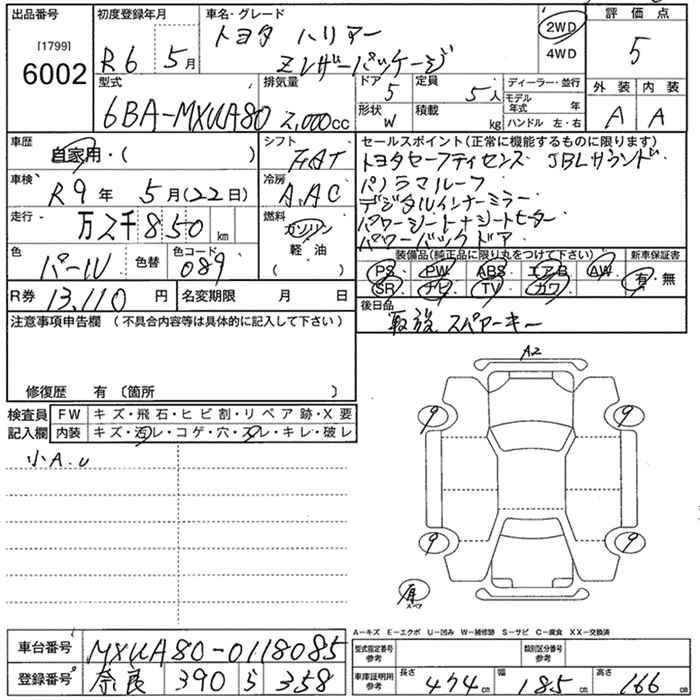 出品番号
[1799]
6002
初度登録年月
R6 5月
車名・グレード
トヨタ ハリアー
Zレザーパッケージ
2WD
4WD
評価点
5
外装 内装
A A
型式
6BA-MXUA80
排気量
2,000cc
ドア
5
定員
5人
形状
W
積載
kg
ディーラー・並行
モデル年式 年
ハンドル 左・右
車歴
自家用・( )
シフト
FAT
車検
R9年 5月(22日)
冷房
A.AC
走行
万2千850km
燃料
ガソリン
軽油
( )
色
パール
色替
色コード
089
R券
13,110円
名変期限 月 日
セールスポイント(正常に機能するものに限ります)
トヨタセーフティセンス JBLサウンド
パノラマルーフ
デジタルインナーミラー
パワーシート+シートヒーター
パワーバックドア
装備品(純正品に限り丸をつけて下さい)
新車保証書
PS PW ABS エアB AW
SR ナビ TV カワ
有・無
後日品
取説 スペアーキー
注意事項申告欄(不具合内容等は具体的に記入して下さい)
修復歴 有 〔箇所 〕
検査員記入欄
FW キズ・飛石・ヒビ割・リペア跡・X要
内装 キズ・汚レ・コゲ・穴・スレ・キレ・破レ
小A.U
A2
9 9
9 9
原
スペア
A-キズ E-エクボ U-凹み W-補修跡 S-サビ C-腐食 XX-交換済
車台番号
MXUA80-0118085
登録番号
奈良 390 ら 358
型式指定番号
参考
類別区分番号
参考
車庫証明用
参考
長さ 474cm
幅 185cm
高さ 166cm